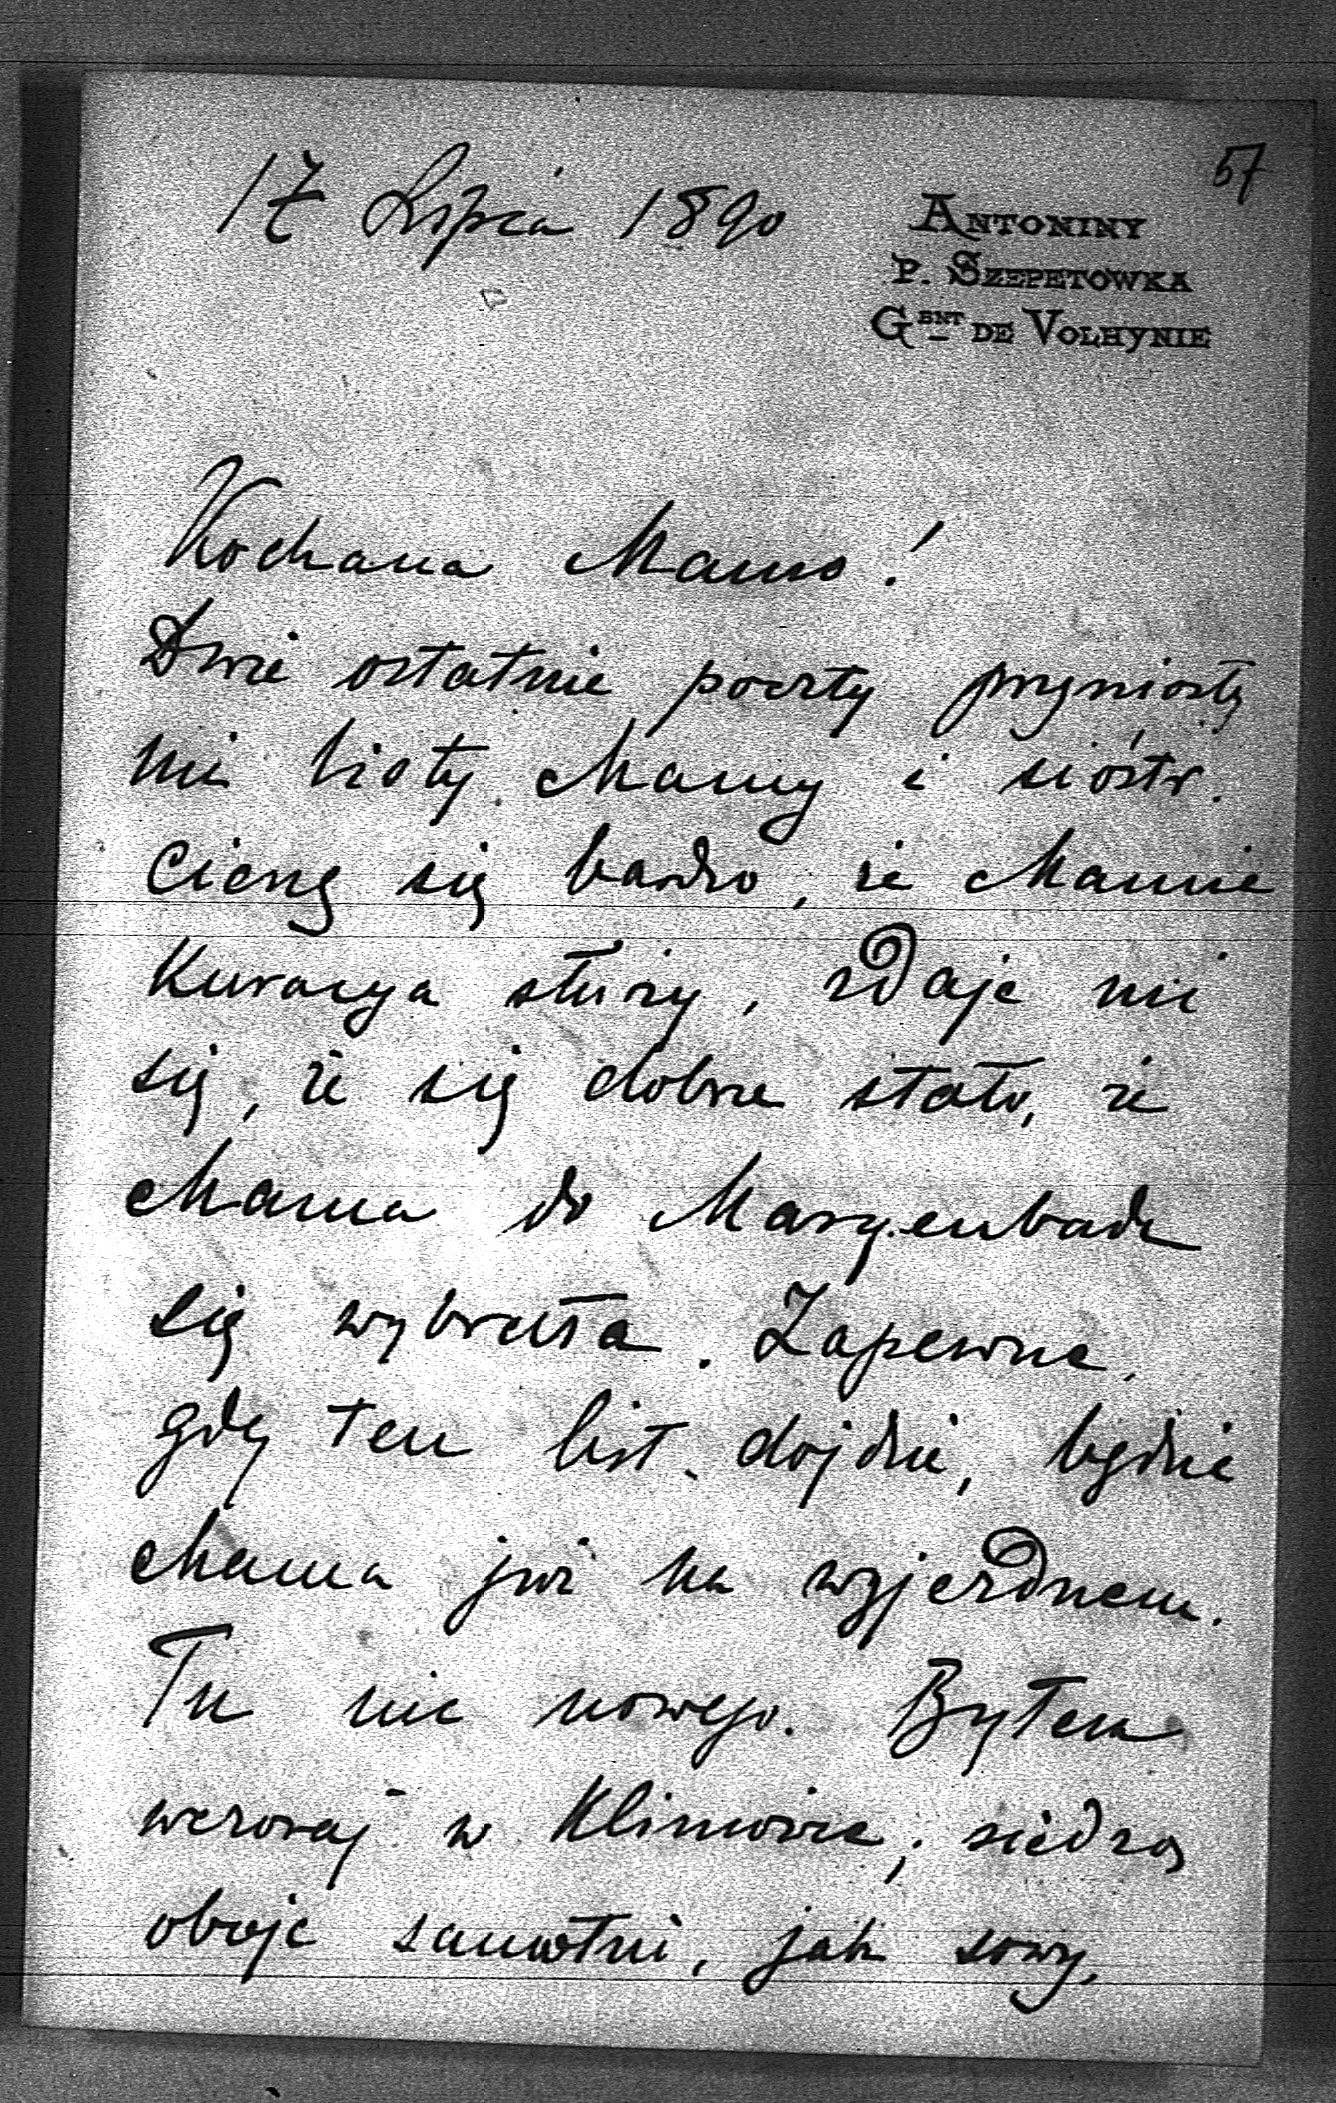 57
17 Lipca 1890
ANTONINY
P. SZEPETOWKA
GENT DE VOLHYNIE
Kochana Mamo!
Dwie ostatnie poczty przyniosły
mi listy Mamy i sióstr.
Cieszę się bardzo, że Mamie
Kuracya służy, zdaje mi
się, że się dobrze stało, że
Mama do Maryenbadu
się wybrała. Zapewne,
gdy ten list dojdzie, będzie
Mama już na wyjezdnem.
Tu nic nowego. Byłem
wczoraj w Klimowce; siedzą
oboje samotni, jak sowy,